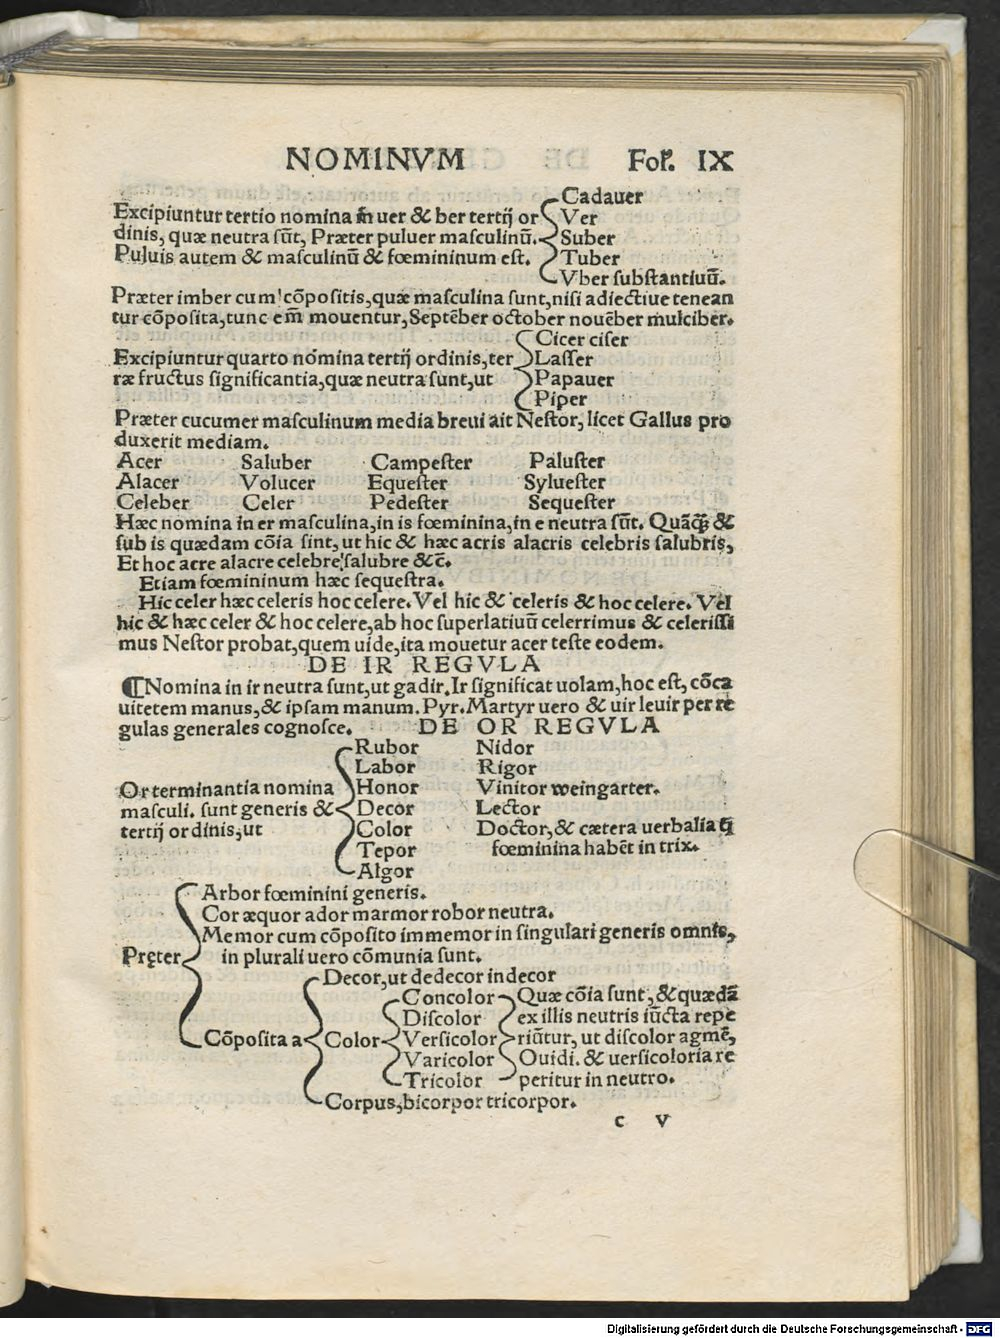 NOMINVM Fol. IX
Cadauer
Excipiuntur tertio nomina in uer & ber tertij or Ver
dinis, quæ neutra sūt, Præter puluer masculinū. Suber
Puluis autem & masculinū & fœmininum est. Tuber
Vber substantiuū.
Præter imber cum cōpositis, quæ masculina sunt, nisi adiectiue tenean
tur cōposita, tunc em̄ mouentur, Septēber october nouēber mulciber.
Cicer ciser
Excipiuntur quarto nomina tertij ordinis, ter Lasser
ræ fructus significantia, quæ neutra sunt, ut Papauer
Piper
Præter cucumer masculinum media breui ait Nestor, licet Gallus pro
duxerit mediam.
Acer Saluber Campester Paluster
Alacer Volucer Equester Syluester
Celeber Celer Pedester Sequester
Hæc nomina in er masculina, in is fœminina, in e neutra sūt. Quāq̄ȝ &
sub is quædam cōia sint, ut hic & hæc acris alacris celebris salubris,
Et hoc acre alacre celebre salubre &c̄.
Etiam fœmininum hæc sequestra.
Hic celer hæc celeris hoc celere. Vel hic & celeris & hoc celere. Vel
hic & hæc celer & hoc celere, ab hoc superlatiuū celerrimus & celerissi
mus Nestor probat, quem uide, ita mouetur acer teste eodem.
DE IR REGVLA
¶ Nomina in ir neutra sunt, ut gadir. Ir significat uolam, hoc est, cōca
uitetem manus, & ipsam manum. Pyr. Martyr uero & uir leuir per re
gulas generales cognosce. DE OR REGVLA
Rubor Nidor
Labor Rigor
Or terminantia nomina Honor Vinitor weingarter.
masculi. sunt generis & Decor Lector
tertij ordinis, ut Color Doctor, & cætera uerbalia q̄
Tepor fœminina habēt in trix.
Algor
Arbor fœminini generis.
Cor æquor ador marmor robor neutra.
Memor cum cōposito immemor in singulari generis omnis,
Pręter in plurali uero cōmunia sunt.
Decor, ut dedecor indecor
Concolor Quæ cōia sunt, & quædā
Discolor ex illis neutris iūcta repe
Cōposita a Color Versicolor riūtur, ut discolor agmē,
Varicolor Ouidi. & uersicoloria re
Tricolor peritur in neutro.
Corpus, bicorpor tricorpor.
c v
Digitalisierung gefördert durch die Deutsche Forschungsgemeinschaft - DFG